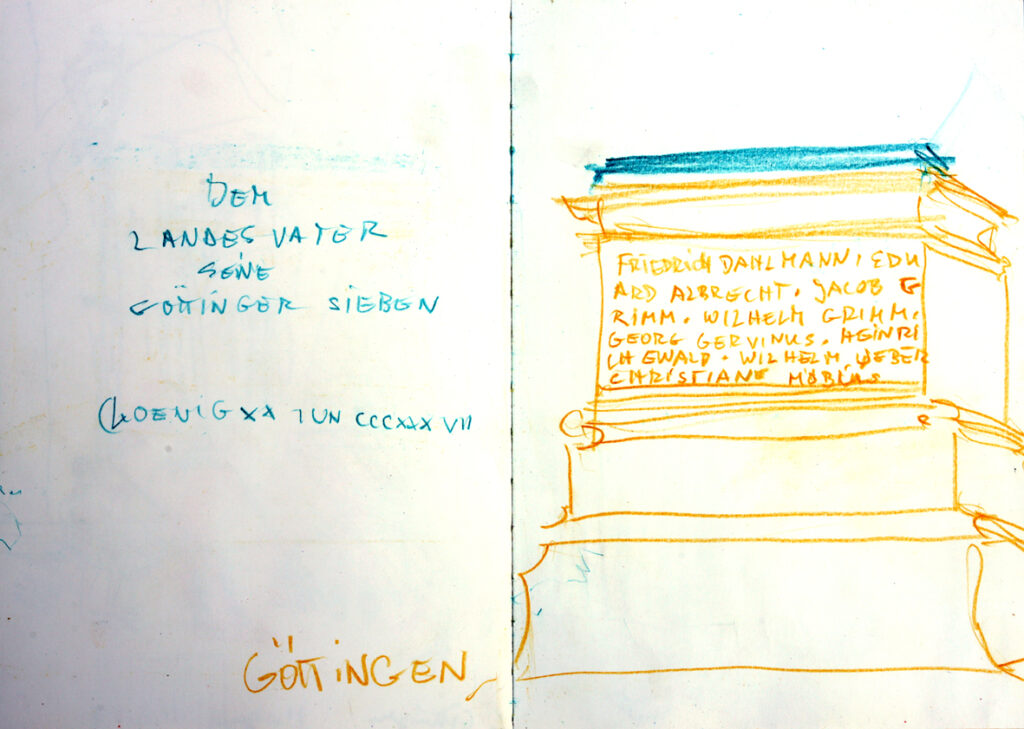 DEM
LANDESVATER
SEINE
GÖTTINGER SIEBEN
XX IUN CCCXXXVII
GÖTTINGEN
FRIEDRICH DAHLMANN, EDU
ARD ALBRECHT. JACOB G
RIMM. WILHELM GRIMM.
GEORG GERVINUS. HEINRI
CH EWALD. WILHELM WEBER
CHRISTIANE MÖBIUS